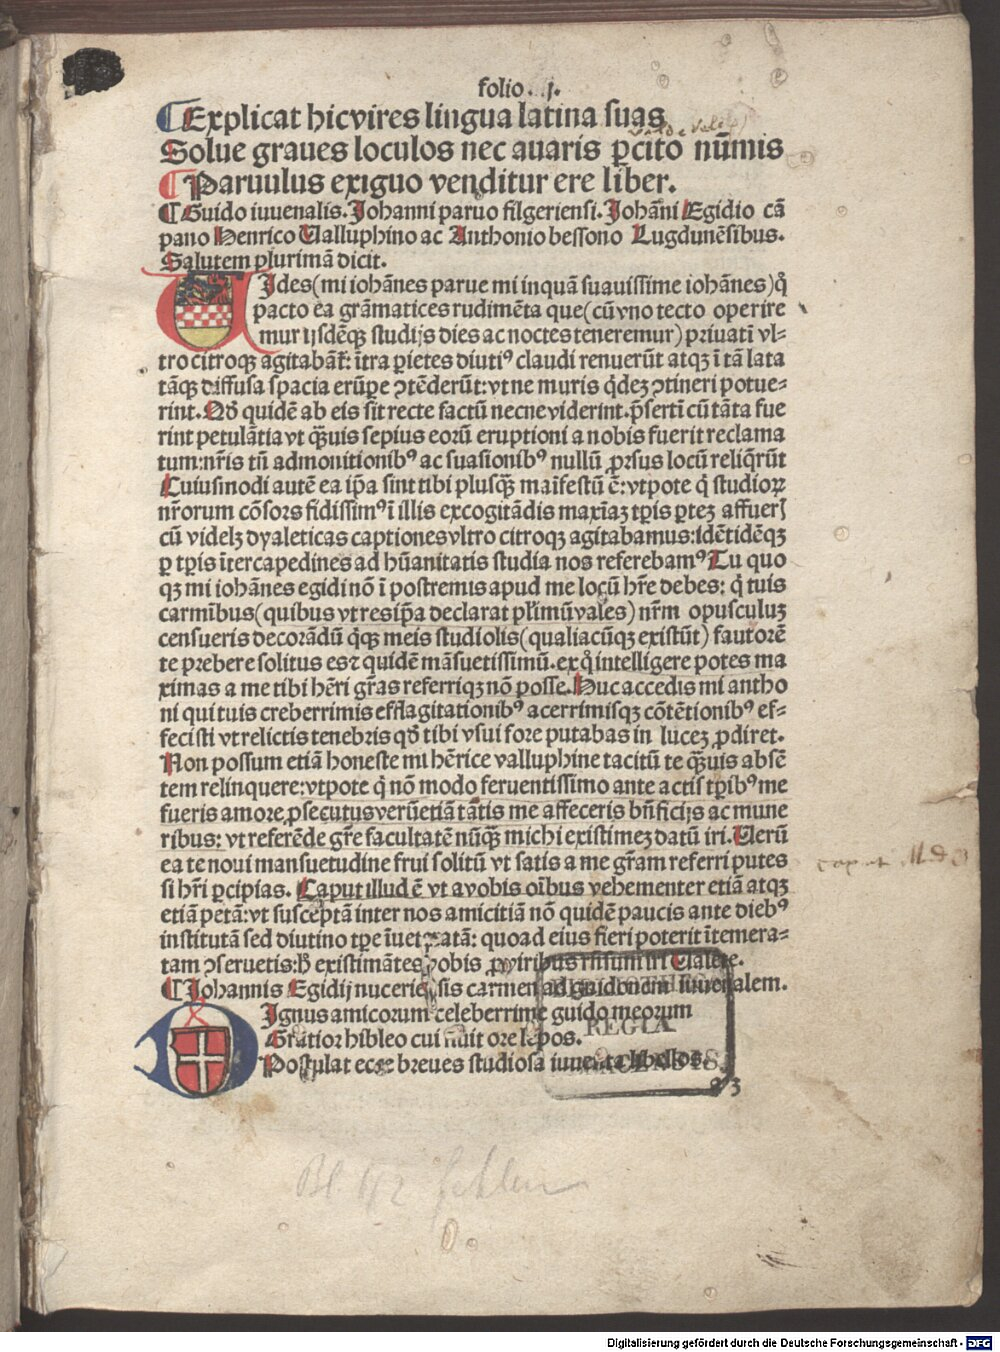 folio
Explicat hic vires lingua latina suas
Solue graues loculos nec auaris ꝑcito nūmis
Paruulus exiguo venditur ere liber.
Guido iuuenalis. Johanni paruo filgeriensi. Johāni Egidio cā
pano Henrico Valluphino ac Anthonio bessono Lugdunēsibus.
Salutem plurimā dicit.
Vides (mi iohānes parue mi inquā suauissime iohānes) qͦ
pacto ea grāmatices rudimēta que (cū vno tecto operire
mur ijsdēqꝫ studijs dies ac noctes teneremur) priuatī vl-
tro citroqꝫ agitabāt: ītra ꝑietes diutiꝰ claudi renuerūt atqꝫ ī tā lata
tāqꝫ diffusa spacia erūꝑe ꝯtēderūt: vt ne muris qͥdeꝫ ꝯtineri potue-
rint. Qd̄ quidē ab eis sit recte factū necne viderint. p̄sertī cū tāta fue
rint petulātia vt qͣꝫuis sepius eorū eruptioni a nobis fuerit reclama
tum: nr̄is tn̄ admonitionibꝰ ac suasionibꝰ nullū ꝓrsus locū reliqͥrūt
Cuiusmodi autē ea ip̄a sint tibi plusqͣꝫ maīfestū ē: vtpote qͥ studioꝝ
nr̄orum cōsors fidissimꝰ ī illis excogitādis maxīaꝫ tp̄is ꝑteꝫ affueris
cū videlꝫ dyaleticas captiones vltro citroqꝫ agitabamus: idētidēqꝫ
ꝑ tp̄is ītercapedines ad hūanitatis studia nos referebamꝰ Tu quo
qꝫ mi iohānes egidi nō ī postremis apud me locū hr̄e debes: qͥ tuis
carmībus (quibus vt res ip̄a declarat plr̄imū vales) nr̄m opusculuꝫ
censueris decorādū qͥqꝫ meis studiolis (qualiacūqꝫ existūt) fautorē
te prebere solitus es ⁊ quidē māsuetissimū. ex qͦ intelligere potes ma
ximas a me tibi hēri gr̄as referriqꝫ nō posse. Huc accedis mi antho
ni qui tuis creberrimis efflagitationibꝰ acerrimisqꝫ cōtētionibꝰ ef-
fecisti vt relictis tenebris qd̄ tibi vsui fore putabas in luceꝫ ꝓdiret.
Non possum etiā honeste mi hērice valluphine tacitū te qͣꝫuis absē
tem relinquere: vtpote qͥ nō modo feruentissimo ante actis tp̄ibꝰ me
fueris amore ꝓsecutus verūetiā tātis me affeceris bn̄ficijs ac mune
ribus: vt referēde gr̄e facultatē nūqͣꝫ michi existimeꝫ datū iri. Verū
ea te noui mansuetudine frui solitū vt satis a me gr̄am referri putes
si hr̄i ꝑcipias. Caput illud ē vt a vobis oībus vehementer etiā atqꝫ
etiā petā: vt susceptā inter nos amicitiā nō quidē paucis ante diebꝰ
institutā sed diutino tꝑe īueteratā: quoad eius fieri poterit ītemera-
tam ꝯseruetis: existimātes vobis ꝓ viribus Valete.
Johannis Egidij nuceriēsis carmen ad guidonem iuuenalem.
Dignus amicorum celeberrime guido meorum
Gratior hibleo cui fluit ore lepos.
Postulat ecce breues studiosa iuuenta libellos.
a 3
BIBLIOTHECA
REGIA
MONACENSIS.
Bl. 1/2 fehlen
Digitalisierung gefördert durch die Deutsche Forschungsgemeinschaft - DFG